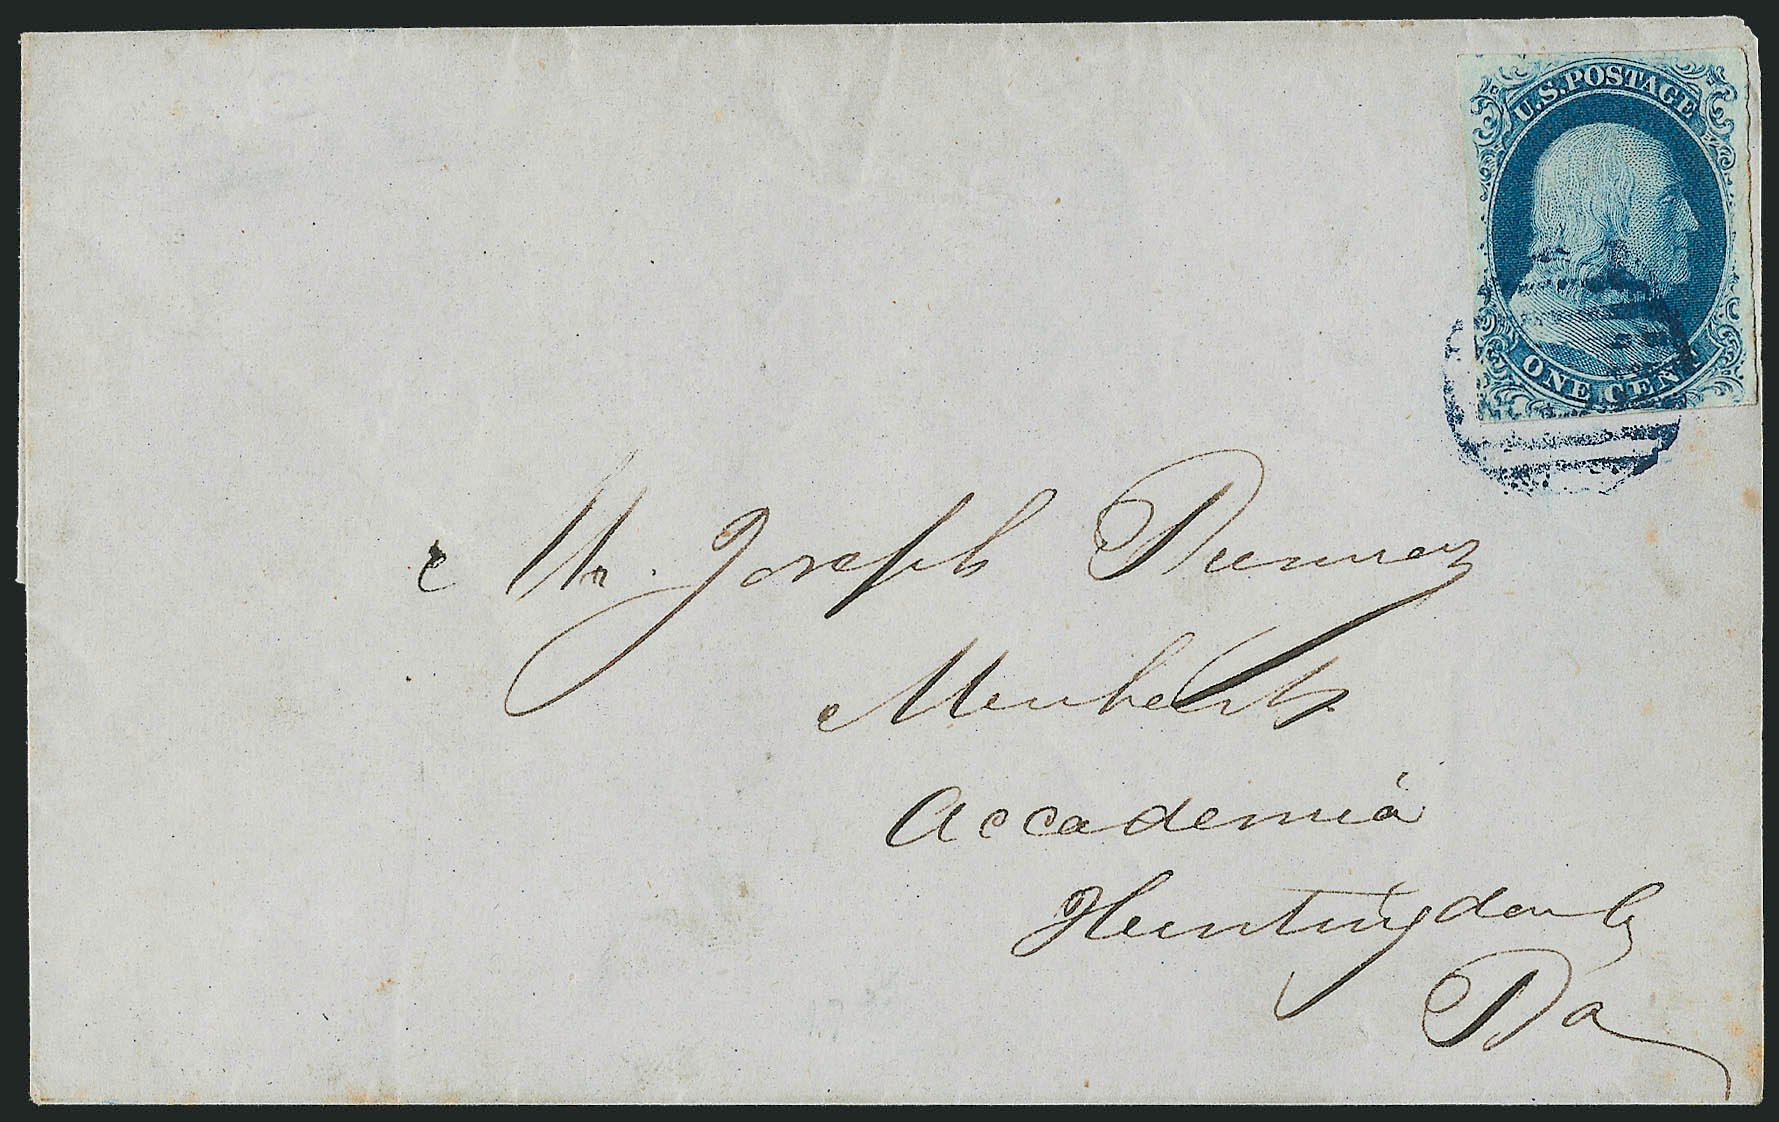 U.S. POSTAGE
ONE CENT
Mr. Joseph
Accademia
Huntingdon Co
Pa